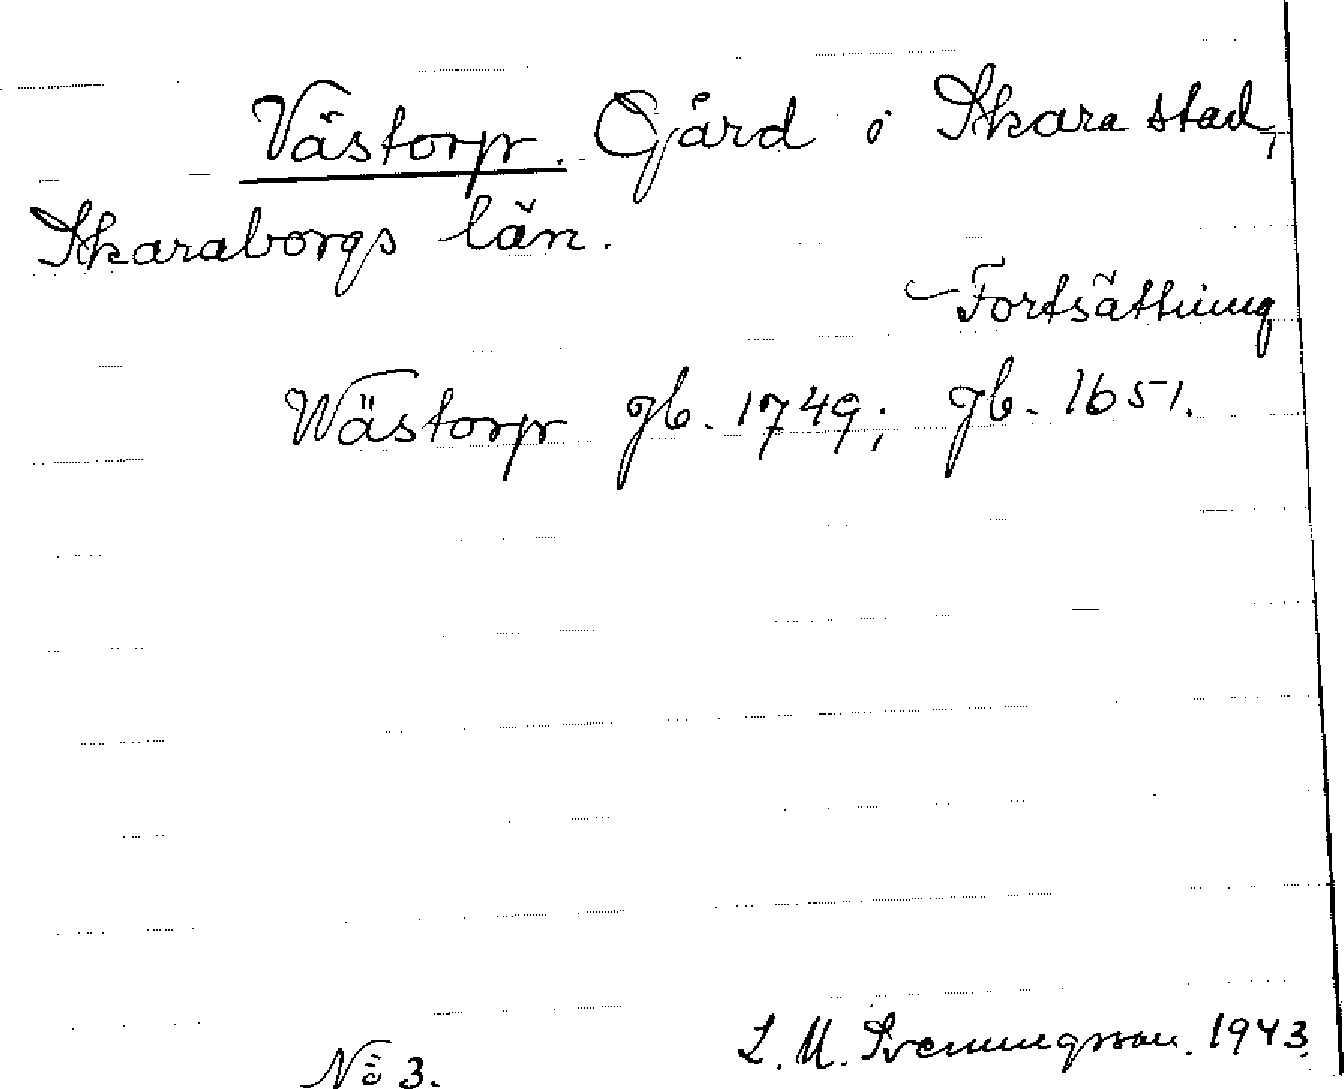 Västorp. Gård i Skara stad,
Skaraborgs län.
Fortsättning
Wästorp gb. 1749; gb. 1651.
No 3. L. M. Svenungsson. 1943.